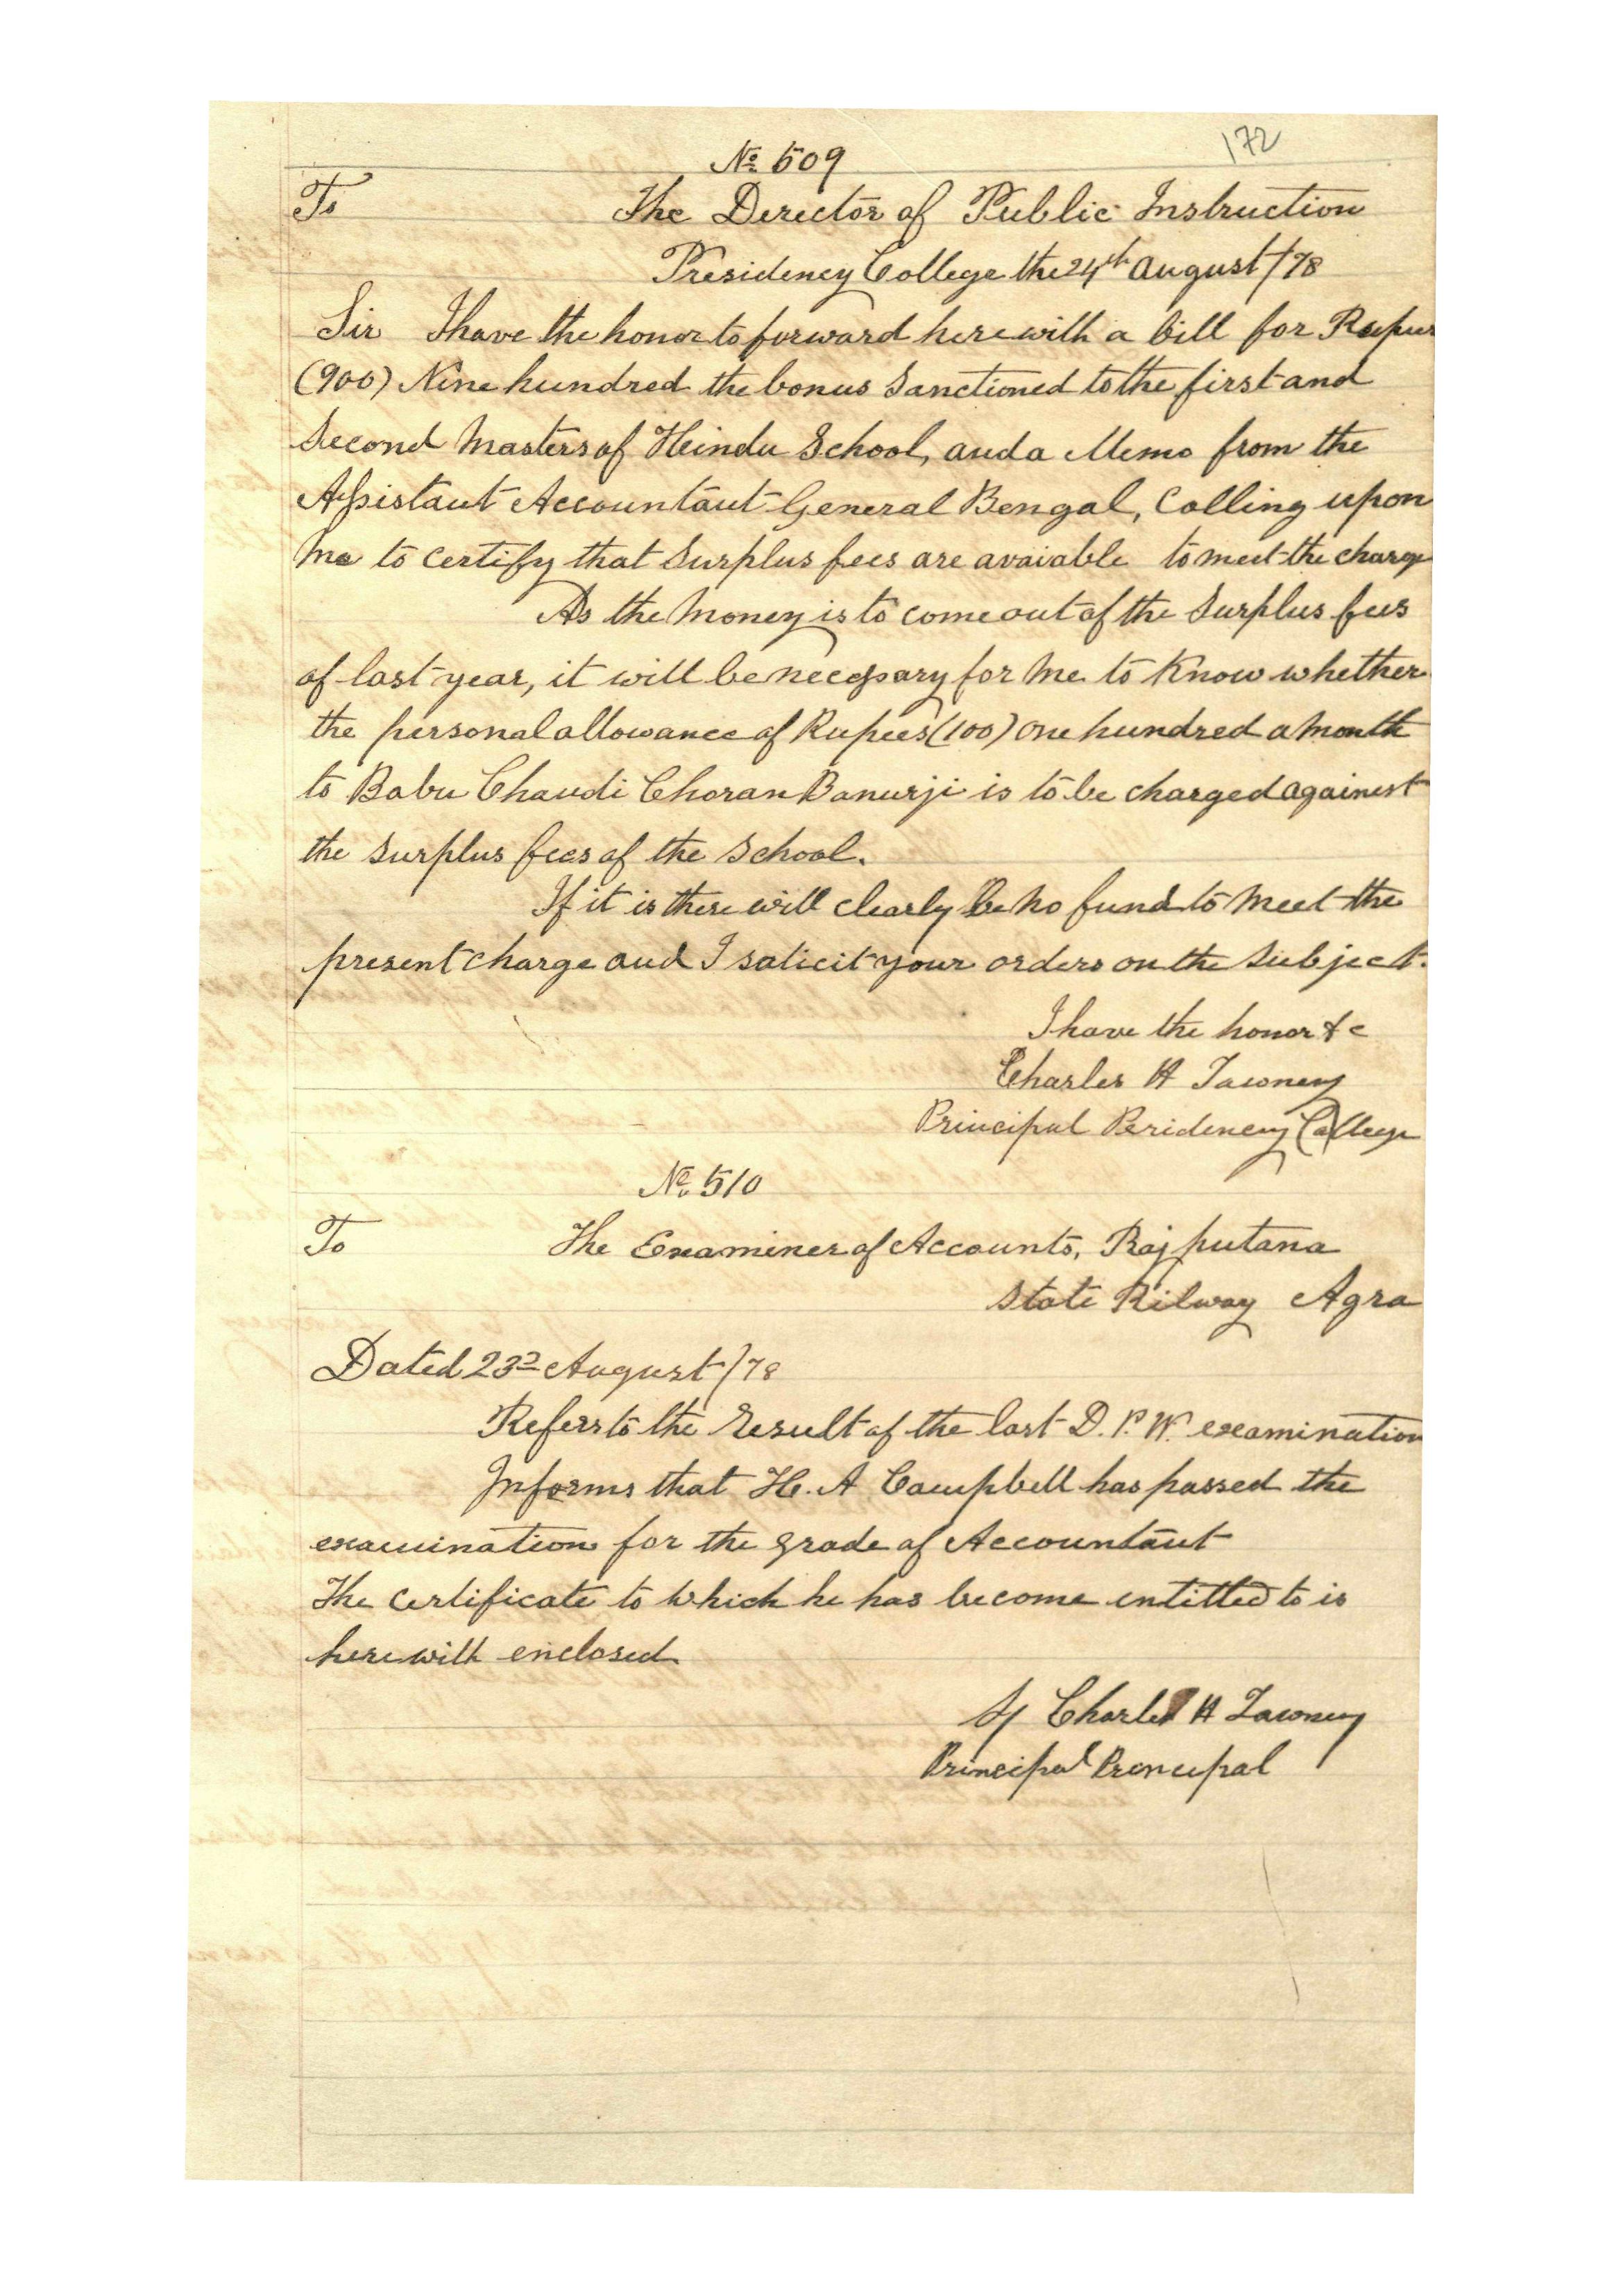 172
No 509
To The Director of Public Instruction
Presidency College the 24th August /78
Sir I have the honor to forward herewith a bill for Rupees
(900) Nine hundred the bonus Sanctioned to the first and
Second Masters of Hindu School, and a Memo from the
Assistant Accountant General Bengal, Calling upon
Me to Certify that Surplus fees are avaiable to meet the charge
As the Money is to come out of the Surplus fees
of last year, it will be necessary for Me to Know whether
the personal allowance of Rupees (100) One hundred a Month
to Babu Chandi Choran Banurji is to be charged againest
the Surplus fees of the School.
If it is there will clearly be no fund to Meet the
present charge and I solicit your orders on the Subject.
I have the honor &c
Charles H Tawney
Principal Peridency College
No. 510
To The Examiner of Accounts, Rajputana
State Rilway Agra
Dated 23d August /78
Refers to the Result of the last D. P. W. examination
Informs that H. A Campbell has passed the
examination for the grade of Accountant
The Certificate to Which he has become entitled to is
herewith enclosed
Sd Charles H Tawney
Principal Principal